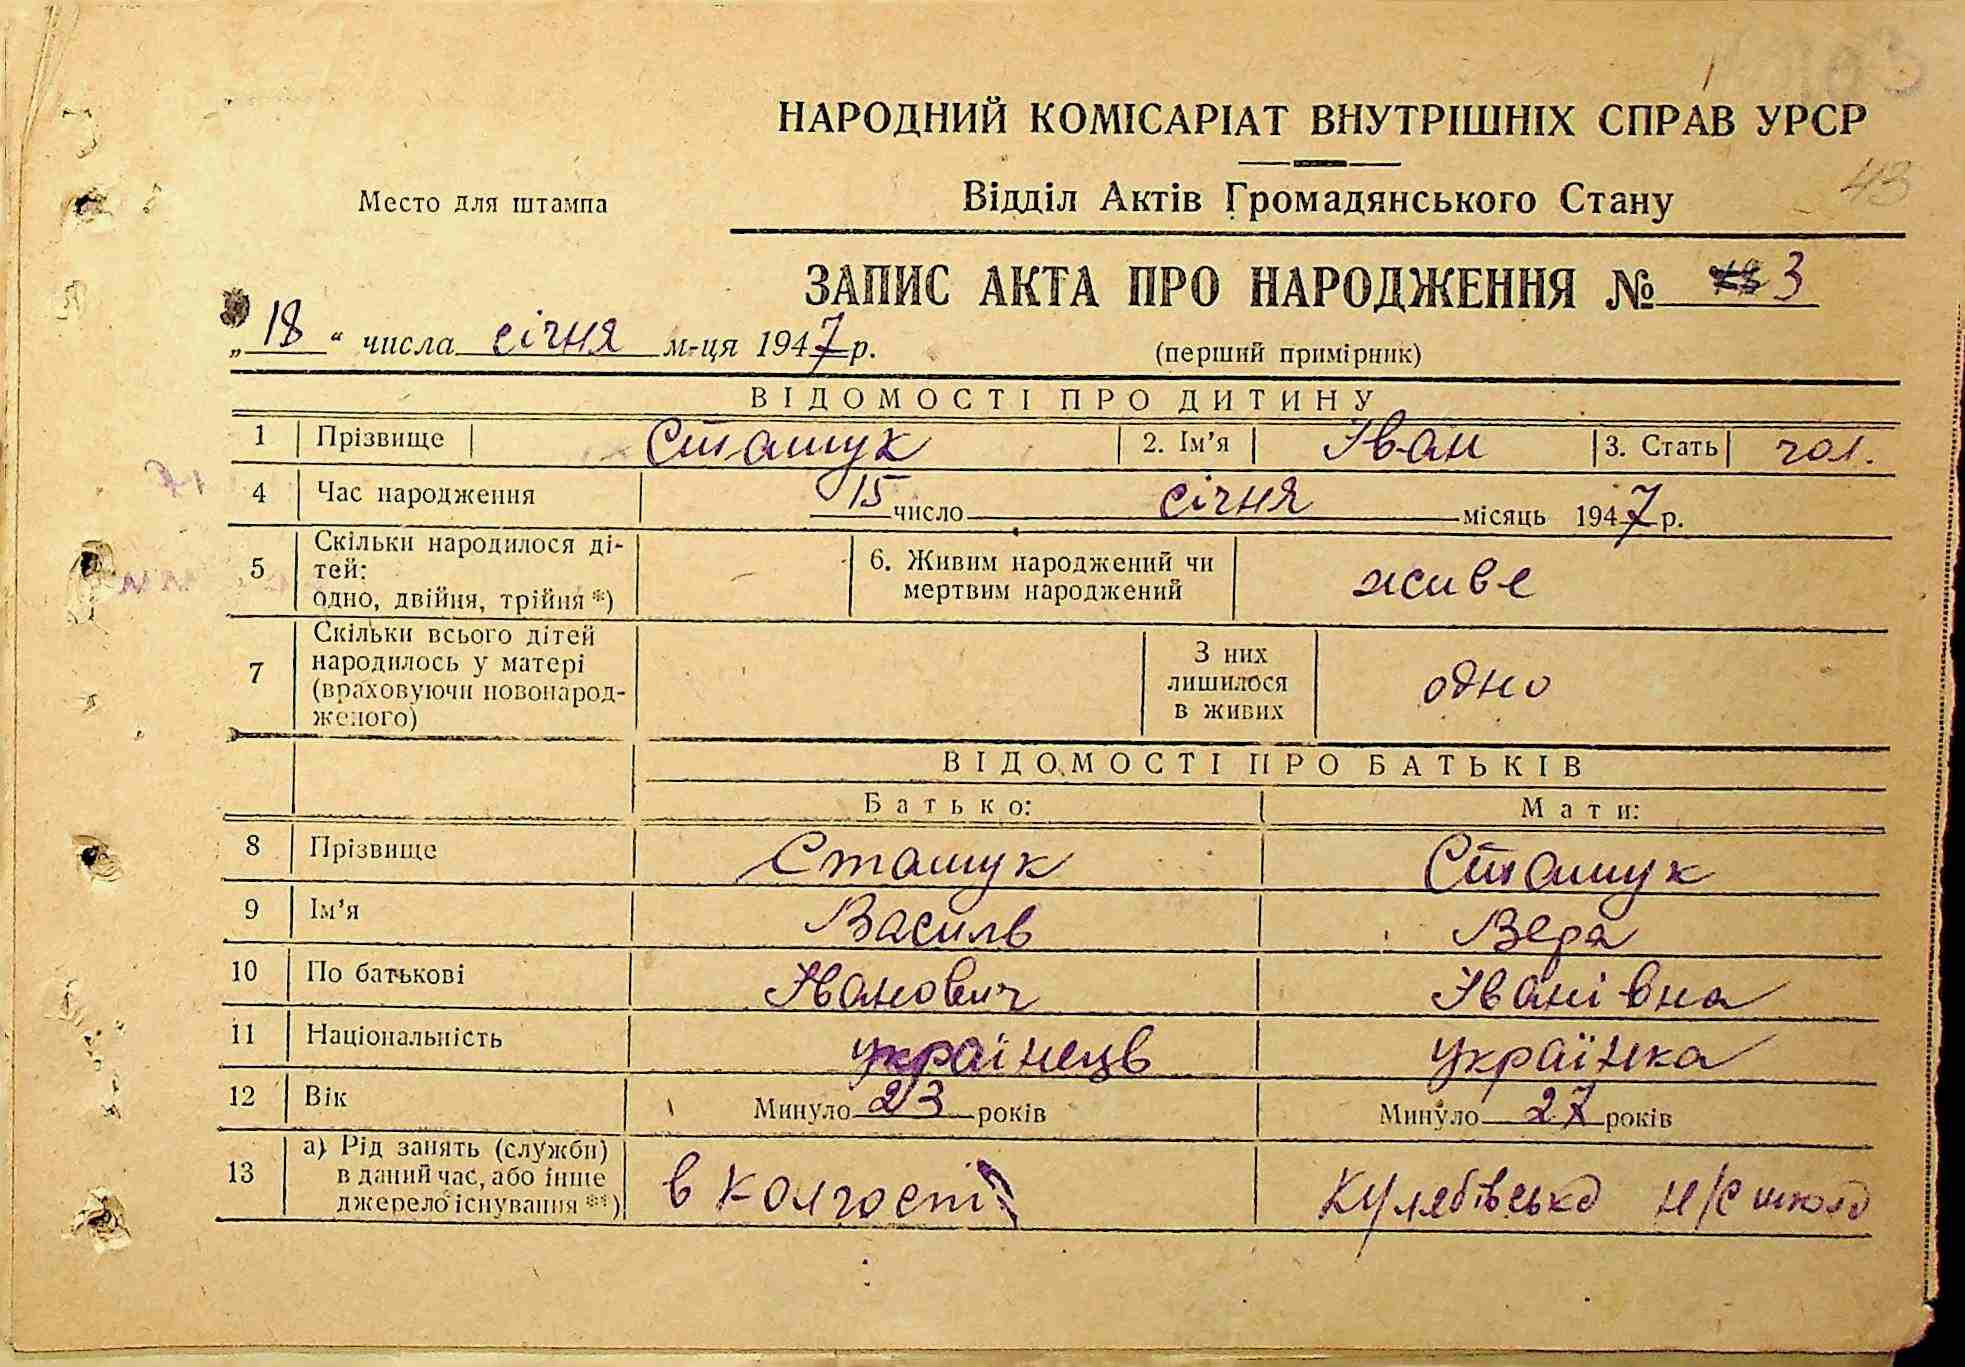 НАРОДНИЙ КОМІСАРІАТ ВНУТРІШНІХ СПРАВ УРСР
43
Место для штампа
Відділ Актів Громадянського Стану
ЗАПИС АКТА ПРО НАРОДЖЕННЯ № 3
„ 18 “ числа січня м-ця 1947 р.
(перший примірник)
ВІДОМОСТІ ПРО ДИТИНУ
1 Прізвище Сташук 2. Ім’я Іван 3. Стать чол.
4 Час народження 15 число січня місяць 1947 р.
5 Скільки народилося ді-
тей:
одно, двійня, трійня *) — 6. Живим народжений чи
мертвим народжений живе
7 Скільки всього дітей
народилось у матері
(враховуючи новонарод-
женого) З них
лишилося
в живих одно
ВІДОМОСТІ ПРО БАТЬКІВ
Батько: Мати:
8 Прізвище Сташук Сташук
9 Ім’я Василь Вера
10 По батькові Іванович Іванівна
11 Національність українець українка
12 Вік Минуло 23 років Минуло 27 років
13 а) Рід занять (служби)
в даний час, або інше
джерело існування **) в колгості Кулябівська н/с школа